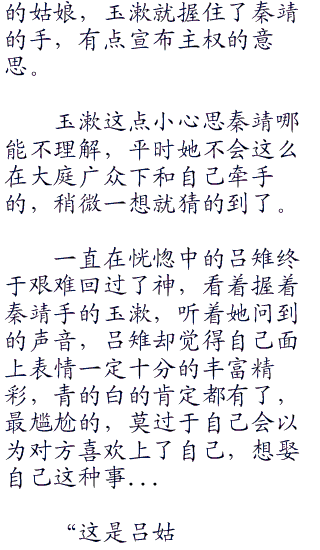 的姑娘，玉漱就握住了秦靖
的手，有点宣布主权的意
思。
玉漱这点小心思秦靖哪
能不理解，平时她不会这么
在大庭广众下和自己牵手
的，稍微一想就猜的到了。
一直在恍惚中的吕雉终
于艰难回过了神，看着握着
秦靖手的玉漱，听着她问到
的声音，吕雉却觉得自己面
上表情一定十分的丰富精
彩，青的白的肯定都有了，
最尴尬的，莫过于自己会以
为对方喜欢上了自己，想娶
自己这种事...
“这是吕姑